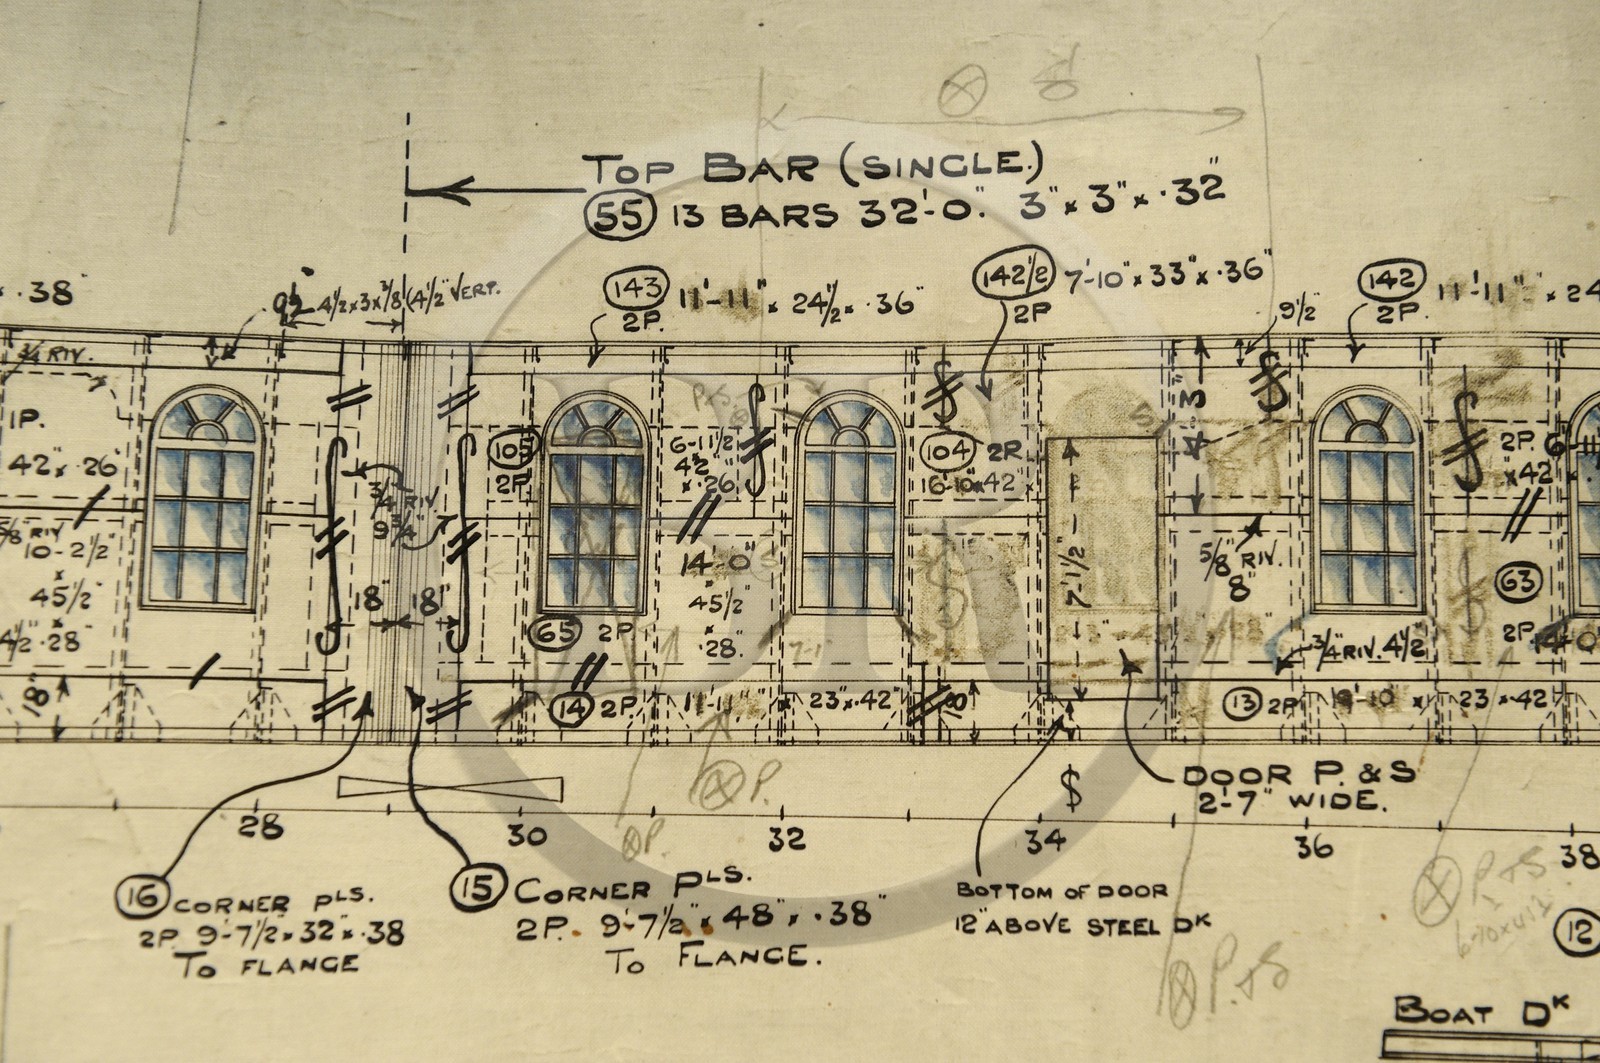 TOP BAR (SINGLE.)
55 13 BARS 32'-0". 3" x 3" x .32"
x .38"
9½
4½ x 3 x 3/8 (4½" VERT.
143
11'-11" x 24½ x .36"
2P.
142½ 7'-10" x 33" x .36"
2P
9½"
142 11'-11" x 24
2P.
¾ RIV.
1P.
42" x .26"
5/8" RIV
10-2½"
x
45½"
4½ .28"
18"
¾ RIV
9¾"
18" 18"
105
2P
6-11½
42"
x .26"
14'-0"
45½"
x
.28"
65 2P
14 2P. 11'-11" x 23" x .42"
P&S
104 2R
16'-10 x 42"
7'-1½"
4'-3"
5/8" RIV.
8"
¾" RIV. 4½"
13 2P 23 x .42"
2P. 6-11
x 42
63
2P. 14-0"
DOOR P. & S
2'-7" WIDE.
28 30 32 34 36 38
16 CORNER PLS.
2P 9'-7½ x 32" x .38
TO FLANGE
15 CORNER PLS.
2P. 9'-7½" x 48" x .38"
TO FLANGE.
BOTTOM OF DOOR
12" ABOVE STEEL DK
P.
P.
P+S
P+S
12
BOAT DK